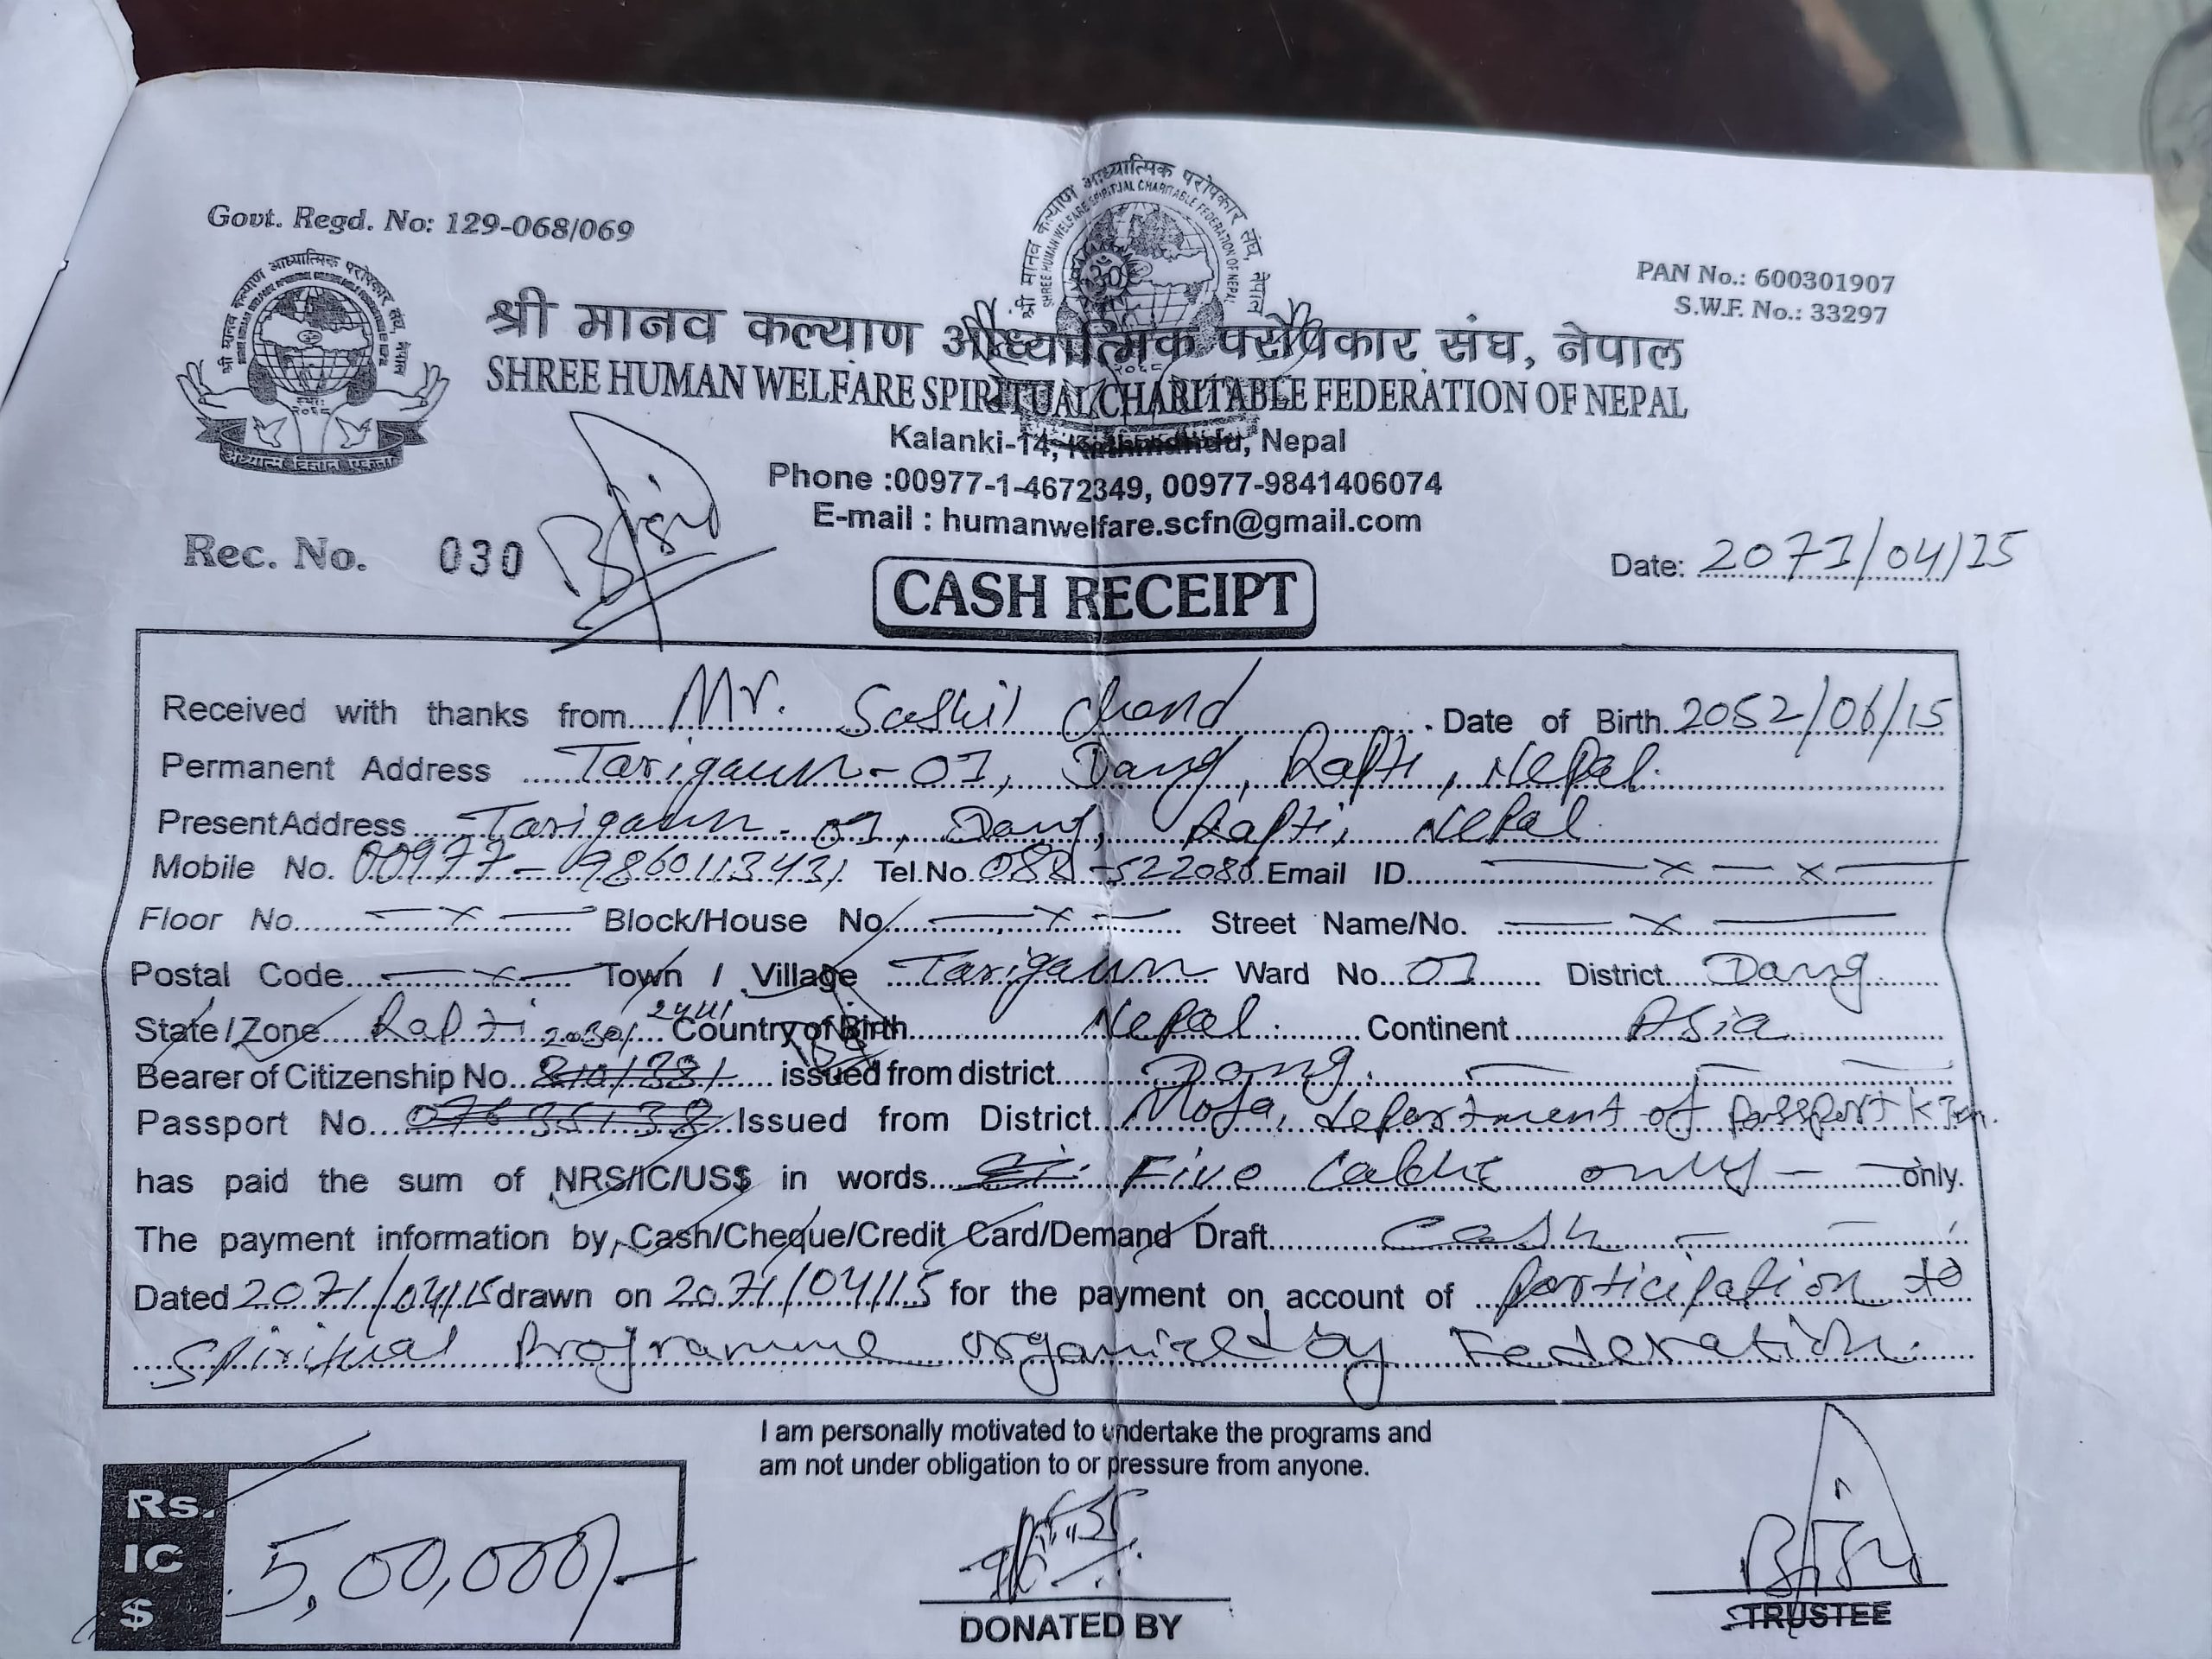 Govt. Regd. No: 129-068/069
PAN No.: 600301907
S.W.F. No.: 33297
श्री मानव कल्याण आध्यात्मिक परोपकार संघ, नेपाल
SHREE HUMAN WELFARE SPIRITUAL CHARITABLE FEDERATION OF NEPAL
Kalanki-14, Kathmandu, Nepal
Phone :00977-1-4672349, 00977-9841406074
E-mail : humanwelfare.scfn@gmail.com
Rec. No. 030
Date: 2071/04/15
CASH RECEIPT
Received with thanks from Mr. Sushil Chand Date of Birth 2052/06/15
Permanent Address Tarigaun-01, Dang, Rapti, Nepal.
Present Address Tarigaun-01, Dang, Rapti, Nepal.
Mobile No. 00977-9860113431 Tel.No 082-522086 Email ID — x — x —
Floor No. — x — Block/House No. — x — Street Name/No. — x —
Postal Code — x — Town / Village Tarigaun Ward No. 01 District Dang
State / Zone Rapti Country of Birth Nepal. Continent Asia
Bearer of Citizenship No. issued from district Dang.
Passport No. Issued from District Mofa, department of passport KTM.
has paid the sum of NRS/IC/US$ in words Five lakhs only — only.
The payment information by, Cash/Cheque/Credit Card/Demand Draft Cash
Dated 2071/04/15 drawn on 2071/04/15 for the payment on account of participation to
Spiritual Programme organized by Federation.
I am personally motivated to undertake the programs and
am not under obligation to or pressure from anyone.
Rs.
IC
$
5,00,000/-
DONATED BY
TRUSTEE